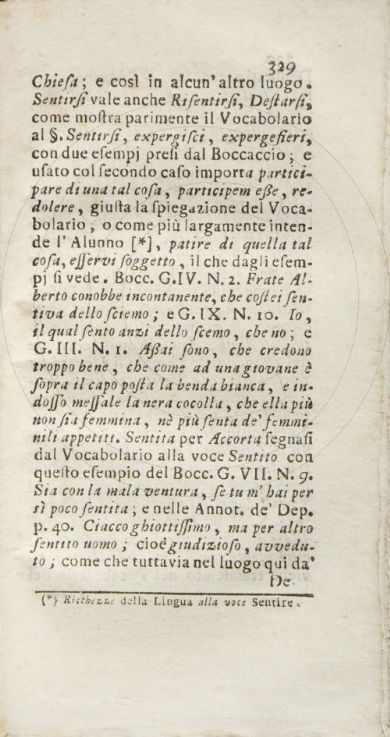 329
Chiesa; e così in alcun' altro luogo.
Sentirsi vale anche Risentirsi, Destarsi,
come mostra parimente il Vocabolario
al §. Sentirsi, expergisci, expergefieri,
con due esempj presi dal Boccaccio; e
usato col secondo caso importa partici-
pare di una tal cosa, participem eße, re-
dolere, giusta la spiegazione del Voca-
bolario, o come più largamente inten-
de l' Alunno [*], patire di quella tal
cosa, esservi soggetto, il che dagli esem-
pj si vede. Bocc. G. IV. N. 2. Frate Al-
berto conobbe incontanente, che costei sen-
tiva dello sciemo; e G. IX. N. 10. Io,
il qual sento anzi dello scemo, che no; e
G. III. N. 1. Aßai sono, che credono
troppo bene, che come ad una giovane è
sopra il capo posta la benda bianca, e in-
dosso messale la nera cocolla, che ella più
non sia femmina, nè più senta de' femmi-
nili appetiti. Sentita per Accorta segnasi
dal Vocabolario alla voce Sentito con
questo esempio del Bocc. G. VII. N. 9.
Sia con la mala ventura, se tu m' hai per
sì poco sentita; e nelle Annot. de' Dep.
p. 40. Ciacco ghiottissimo, ma per altro
sentito uomo; cioè giudizioso, avvedu-
to; come che tuttavia nel luogo qui da'
De
(*) Ricchezze della Lingua alla voce Sentire.